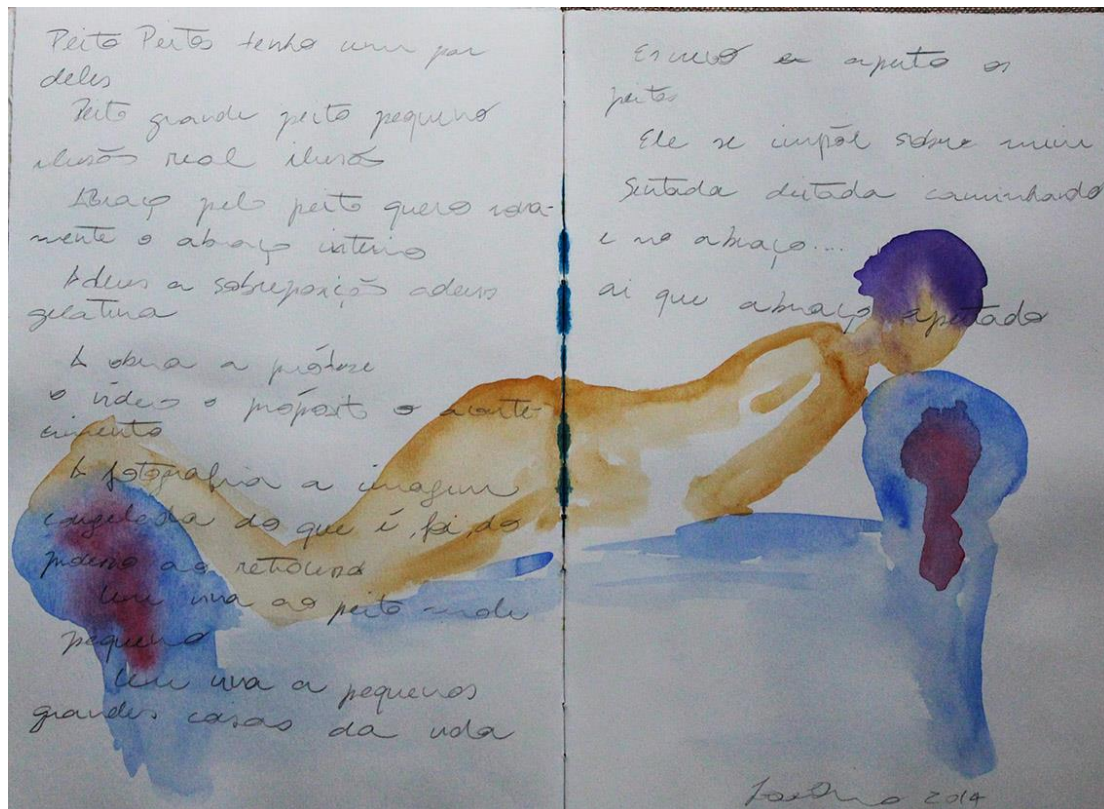 Peito Peitos tenho um par
deles
Peito grande peito pequeno
ilusão real ilusão
Abraço pelo peito quero nova-
mente o abraço interno
Adeus a sobreposição adeus
gelatina
A obra a prótese
o vídeo o propósito o aconte-
cimento
A fotografia a imagem
congelada do que é, foi, do
ao
Um viva ao peito
pequeno
Um viva a pequenos
grandes casos da vida
Escrevo e aperto os
peitos
Ele se impõe sobre mim
Sentada deitada caminhando
e no abraço...
ai que abraço apertado
2014